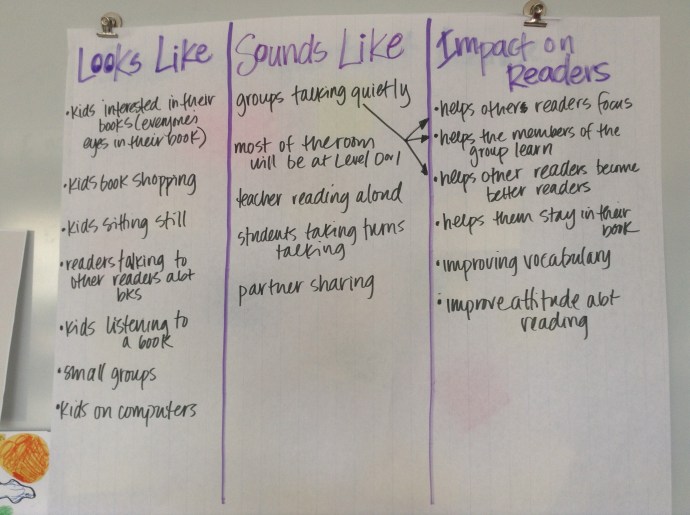 Looks Like
• kids interested in their
books (everyones
eyes in their book)
• Kids book shopping
• Kids sitting still
• readers talking to
other readers abt
bks
• Kids listening to
a book
• small groups
• Kids on computers
Sounds Like
groups talking quietly
most of the room
will be at Level 0 or 1
teacher reading aloud
students taking turns
talking
partner sharing
Impact on
Readers
• helps others readers focus
• helps the members of the
group learn
• helps other readers become
better readers
• helps them stay in their
book
• improving vocabulary
• improve attitude abt
reading